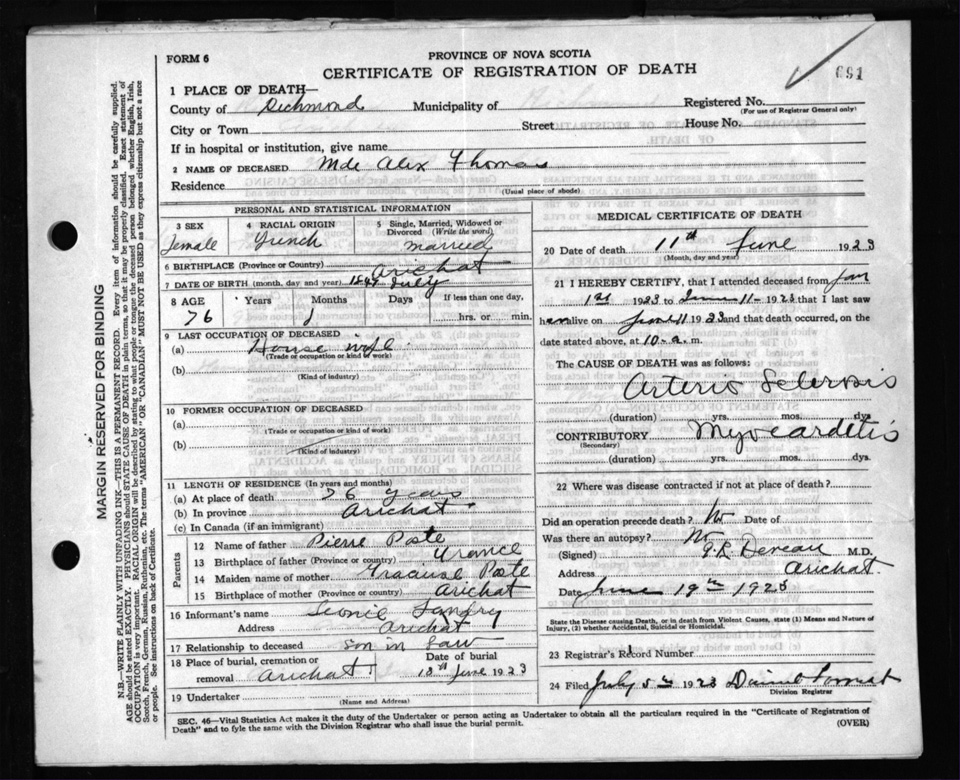 FORM 6
PROVINCE OF NOVA SCOTIA
CERTIFICATE OF REGISTRATION OF DEATH
691
1 PLACE OF DEATH—
County of Richmond Municipality of Registered No.
(For use of Registrar General only)
City or Town Street House No.
If in hospital or institution, give name
2 NAME OF DECEASED Mde Alex Thomas
Residence
(Usual place of abode)
PERSONAL AND STATISTICAL INFORMATION
3 SEX 4 RACIAL ORIGIN 5 Single, Married, Widowed or Divorced (Write the word)
Female French married
6 BIRTHPLACE (Province or Country) Arichat
7 DATE OF BIRTH (month, day and year) July
8 AGE Years Months Days If less than one day,
76 hrs. or min.
9 LAST OCCUPATION OF DECEASED
(a) House wife
(Trade or occupation or kind of work)
(b)
(Kind of industry)
10 FORMER OCCUPATION OF DECEASED
(a)
(Trade or occupation or kind of work)
(b)
(Kind of industry)
11 LENGTH OF RESIDENCE (In years and months)
(a) At place of death 76 years
(b) In province Arichat
(c) In Canada (if an immigrant)
Parents
12 Name of father Pierre Poste
13 Birthplace of father (Province or country) France
14 Maiden name of mother Poste
15 Birthplace of mother (Province or country) Arichat
16 Informant's name Landry
Address Arichat
17 Relationship to deceased Son in Law
18 Place of burial, cremation or removal Arichat Date of burial 13th June 1923
19 Undertaker
(Name and Address)
MEDICAL CERTIFICATE OF DEATH
20 Date of death 11th June 1923
(Month, day and year)
21 I HEREBY CERTIFY, that I attended deceased from Jan
1st 1923 to June 11 1923 that I last saw
her alive on June 11 1923 and that death occurred, on the
date stated above, at 10 a. m.
The CAUSE OF DEATH was as follows:
Arterio Sclerosis
(duration) yrs. mos. dys
CONTRIBUTORY Myocarditis
(Secondary)
(duration) yrs. mos. dys.
22 Where was disease contracted if not at place of death?
Did an operation precede death? No Date of
Was there an autopsy? No
(Signed) Deveau M.D.
Address Arichat
Date June 19th 1923
State the Disease causing Death, or in death from Violent Causes, state (1) Means and Nature of Injury, (2) whether Accidental, Suicidal or Homicidal.
23 Registrar's Record Number
24 Filed July 5th 1923
Division Registrar
SEC. 46—Vital Statistics Act makes it the duty of the Undertaker or person acting as Undertaker to obtain all the particulars required in the "Certificate of Registration of
Death" and to fyle the same with the Division Registrar who shall issue the burial permit. (OVER)
MARGIN RESERVED FOR BINDING
N.B.—WRITE PLAINLY WITH UNFADING INK—THIS IS A PERMANENT RECORD. Every item of information should be carefully supplied.
AGE should be stated EXACTLY. PHYSICIANS should STATE CAUSE OF DEATH in plain terms, so that it may be properly classified. Exact statement of
OCCUPATION is very important. RACIAL ORIGIN will be described by stating to what people or tongue the deceased person belonged whether English, Irish,
Scotch, French, German, Russian, Ruthenian, etc. The terms "AMERICAN" or "CANADIAN" MUST NOT BE USED as they express citizenship but not a race
or people. See instructions on back of Certificate.